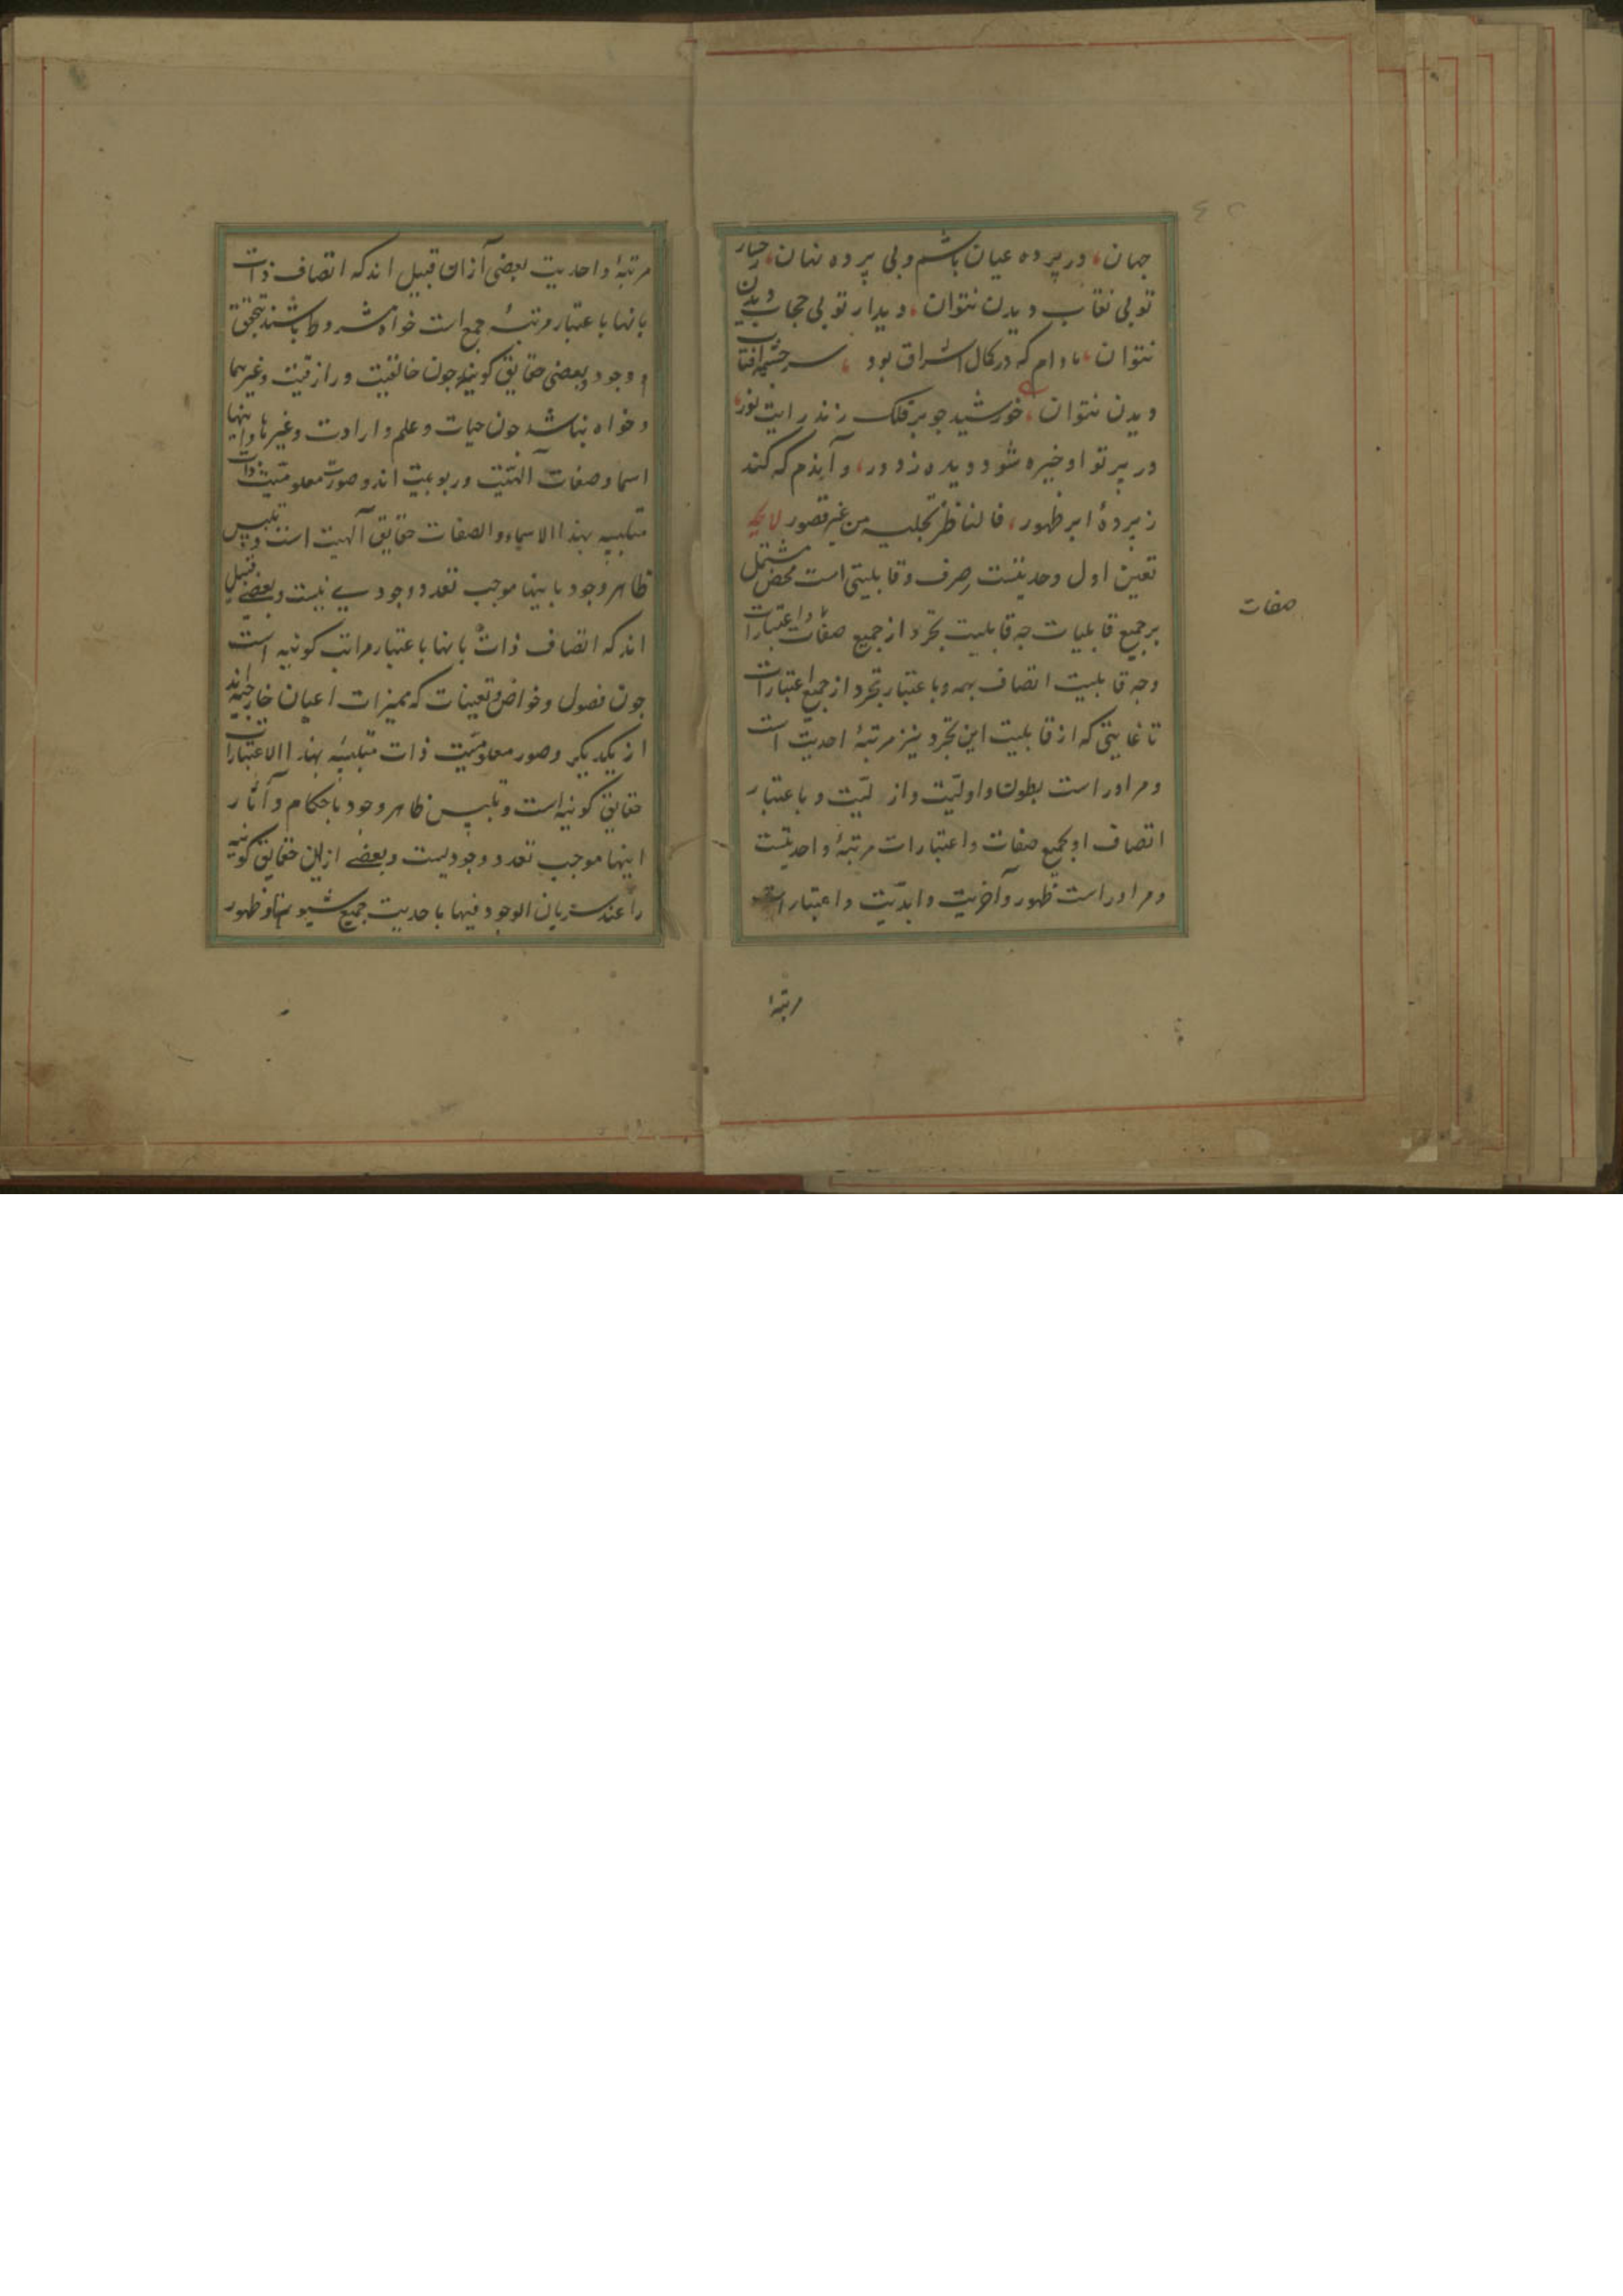 جهان، در پرده عیان باشم و بی پرده نهان، رخسار
تو بی نقاب دیدن نتوان، دیدار تو بی حجاب دیدن
نتوان، مادام که در کمال اشراق بود، سرچشمه افتاب
دیدن نتوان، خورشید چو بر فلک زند رایت نور،
در پرتو او خیره شود دیده ز دور، و آندم که کند
ز پردهٔ ابر ظهور، فالناظر یجتلیه من غیر قصور لایحه
تعین اول وحدتیست صِرف و قابلیتی است محض مشتمل
بر جمیع قابلیات چه قابلیت تجرد از جمیع صفات و اعتبارات
و چه قابلیت اتصاف بهمه و باعتبار تجرد از جمیع اعتبارات
تا غایتی که از قابلیت این تجرد نیز مرتبهٔ احدیّت است
و مر او راست بطون و اولیّت و ازلیّت و باعتبار
اتصاف او بجمیع صفات و اعتبارات مرتبهٔ واحدیتست
و مر او راست ظهور و آخریت و ابدیّت و اعتبارات
صفات
مرتبهٔ
مرتبهٔ واحدیت بعضی از ان قبیل اند که اتصاف ذات
بانها باعتبار مرتبهٔ جمع است خواه مشروط باشند بتحقق
و وجود بعضی حقایق کونیه چون خالقیت و رازقیت و غیرهما
و خواه نباشد چون حیات و علم و ارادت و غیرها و اینها
اسما و صفات الهیّت و ربوبیت اند و صورت معلومیّت ذات
متلبسه بهذا الاسماء والصفات حقایق الهیت است و تلبس
ظاهر وجود باینها موجب تعدد وجودی نیست و بعضی قبیل
اند که اتصاف ذات بانها باعتبار مراتب کونیه است
چون فصول و خواص و تعینات که ممیزات اعیان خارجیه اند
از یکدیگر و صور معلومیّت ذات متلبسه بهذا الاعتبارات
حقایق کونیه است و تلبس ظاهر وجود باحکام و آثار
اینها موجب تعدد وجودیست و بعضی از این حقایق کونیه
را عند سریان الوجود فیها باحدیت جمیع شیونها و ظهور